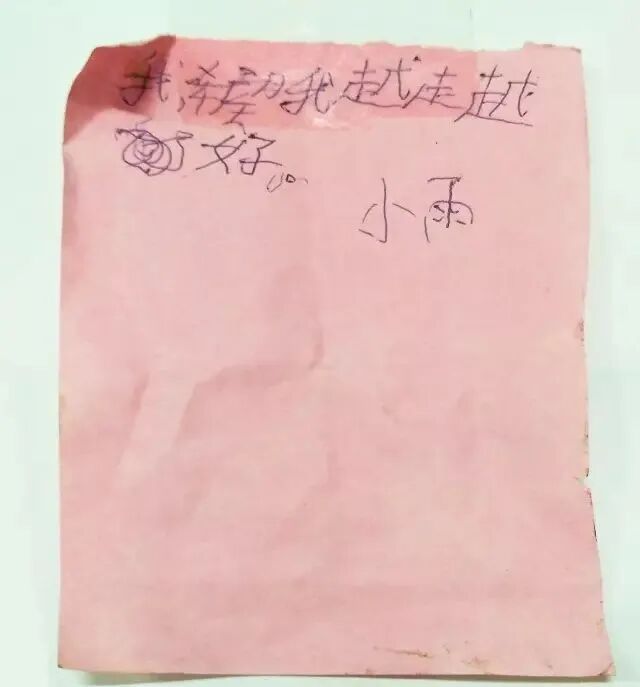 我希望我越走越
好。
小雨